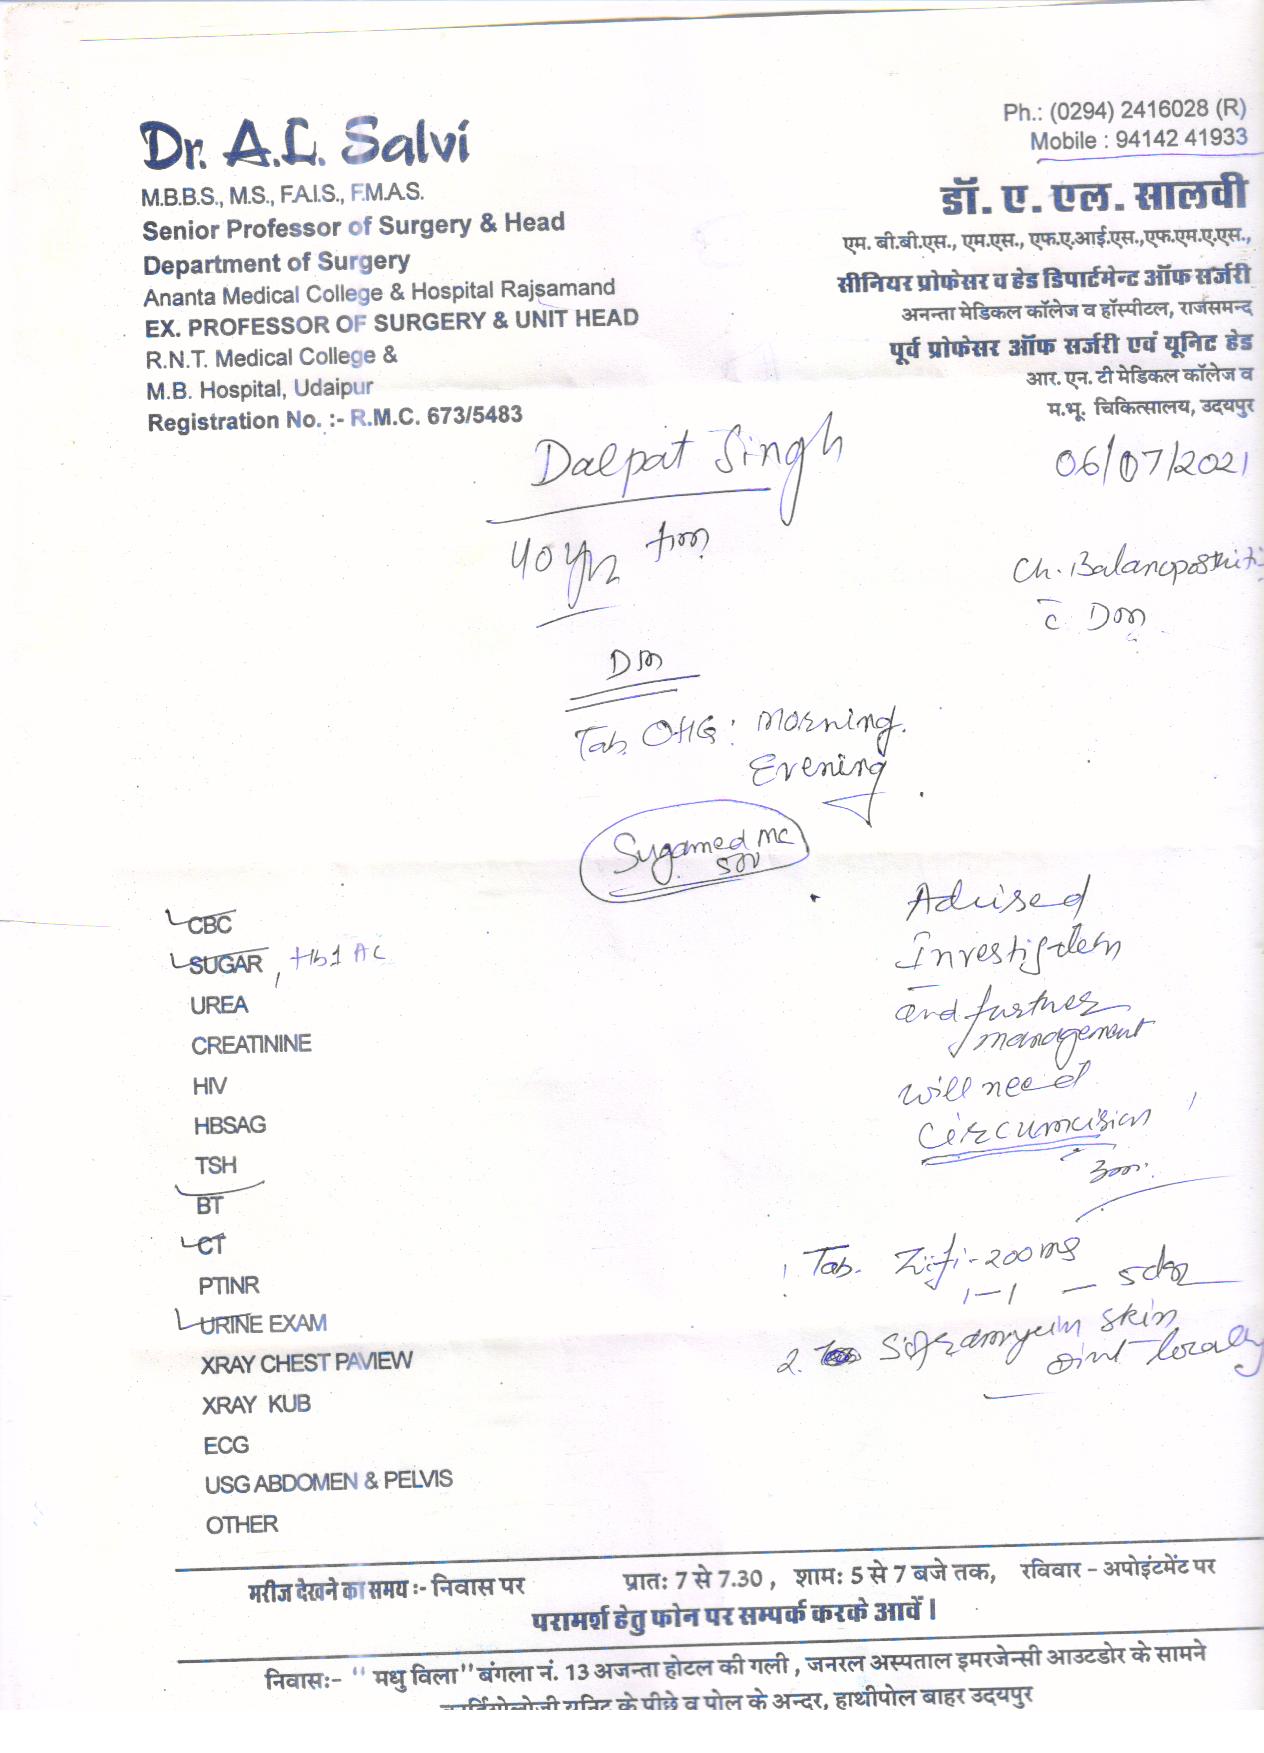 Dr. A.L. Salvi
M.B.B.S., M.S., F.A.I.S., F.M.A.S.
Senior Professor of Surgery & Head
Department of Surgery
Ananta Medical College & Hospital Rajsamand
EX. PROFESSOR OF SURGERY & UNIT HEAD
R.N.T. Medical College &
M.B. Hospital, Udaipur
Registration No. :- R.M.C. 673/5483
Ph.: (0294) 2416028 (R)
Mobile : 94142 41933
डॉ. ए. एल. सालवी
एम. बी.बी.एस., एम.एस., एफ.ए.आई.एस.,एफ.एम.ए.एस.,
सीनियर प्रोफेसर व हेड डिपार्टमेन्ट ऑफ सर्जरी
अनन्ता मेडिकल कॉलेज व हॉस्पीटल, राजसमन्द
पूर्व प्रोफेसर ऑफ सर्जरी एवं यूनिट हेड
आर. एन. टी मेडिकल कॉलेज व
म.भू. चिकित्सालय, उदयपुर
Dalpat Singh
06/07/2021
40 yr
Ch. Balanoposthitis
c̄ DM
DM
Tab OHG: Morning.
Evening
Sugamed MC
500
CBC
SUGAR, Hb1 AC
UREA
CREATININE
HIV
HBSAG
TSH
BT
CT
PTINR
URINE EXAM
XRAY CHEST PAVIEW
XRAY KUB
ECG
USG ABDOMEN & PELVIS
OTHER
Advised
Investigation
and further
management
will need
circumcision
1. Tab. Zifi-200 mg
1-1 - 5 day
2. skin
oint locally
मरीज देखने का समय :- निवास पर प्रातः 7 से 7.30 , शामः 5 से 7 बजे तक, रविवार - अपोइंटमेंट पर
परामर्श हेतु फोन पर सम्पर्क करके आवें।
निवासः- " मधु विला" बंगला नं. 13 अजन्ता होटल की गली , जनरल अस्पताल इमरजेन्सी आउटडोर के सामने
कार्डियोलोजी यूनिट के पीछे व पोल के अन्दर, हाथीपोल बाहर उदयपुर